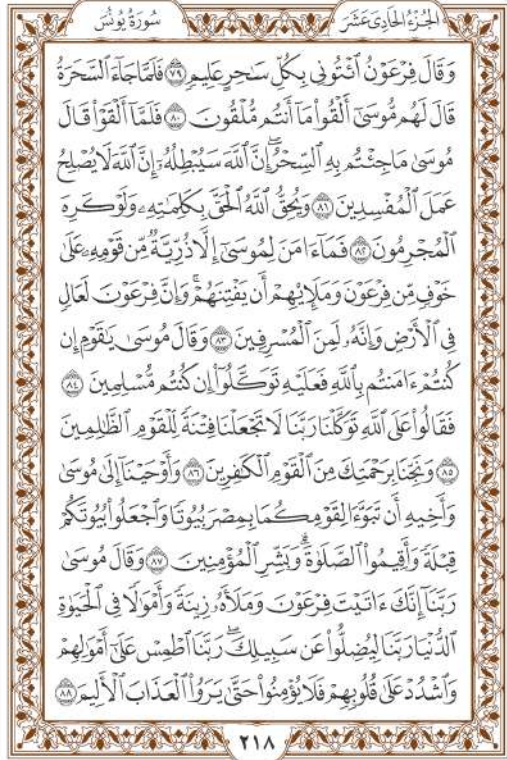 الجُزْءُ الحَادِىَ عَشَرَ
سُورَةُ يُونُسَ
وَقَالَ فِرْعَوْنُ ٱئْتُونِى بِكُلِّ سَـٰحِرٍ عَلِيمٍ ٧٩ فَلَمَّا جَآءَ ٱلسَّحَرَةُ
قَالَ لَهُم مُّوسَىٰٓ أَلْقُوا۟ مَآ أَنتُم مُّلْقُونَ ٨٠ فَلَمَّآ أَلْقَوْا۟ قَالَ
مُوسَىٰ مَا جِئْتُم بِهِ ٱلسِّحْرُ ۖ إِنَّ ٱللَّهَ سَيُبْطِلُهُۥٓ ۖ إِنَّ ٱللَّهَ لَا يُصْلِحُ
عَمَلَ ٱلْمُفْسِدِينَ ٨١ وَيُحِقُّ ٱللَّهُ ٱلْحَقَّ بِكَلِمَـٰتِهِۦ وَلَوْ كَرِهَ
ٱلْمُجْرِمُونَ ٨٢ فَمَآ ءَامَنَ لِمُوسَىٰٓ إِلَّا ذُرِّيَّةٌ مِّن قَوْمِهِۦ عَلَىٰ
خَوْفٍ مِّن فِرْعَوْنَ وَمَلَإِي۟هِمْ أَن يَفْتِنَهُمْ ۚ وَإِنَّ فِرْعَوْنَ لَعَالٍ
فِى ٱلْأَرْضِ وَإِنَّهُۥ لَمِنَ ٱلْمُسْرِفِينَ ٨٣ وَقَالَ مُوسَىٰ يَـٰقَوْمِ إِن
كُنتُمْ ءَامَنتُم بِٱللَّهِ فَعَلَيْهِ تَوَكَّلُوٓا۟ إِن كُنتُم مُّسْلِمِينَ ٨٤
فَقَالُوا۟ عَلَى ٱللَّهِ تَوَكَّلْنَا رَبَّنَا لَا تَجْعَلْنَا فِتْنَةً لِّلْقَوْمِ ٱلظَّـٰلِمِينَ
٨٥ وَنَجِّنَا بِرَحْمَتِكَ مِنَ ٱلْقَوْمِ ٱلْكَـٰفِرِينَ ٨٦ وَأَوْحَيْنَآ إِلَىٰ مُوسَىٰ
وَأَخِيهِ أَن تَبَوَّءَا لِقَوْمِكُمَا بِمِصْرَ بُيُوتًا وَٱجْعَلُوا۟ بُيُوتَكُمْ
قِبْلَةً وَأَقِيمُوا۟ ٱلصَّلَوٰةَ ۗ وَبَشِّرِ ٱلْمُؤْمِنِينَ ٨٧ وَقَالَ مُوسَىٰ
رَبَّنَآ إِنَّكَ ءَاتَيْتَ فِرْعَوْنَ وَمَلَأَهُۥ زِينَةً وَأَمْوَٰلًا فِى ٱلْحَيَوٰةِ
ٱلدُّنْيَا رَبَّنَا لِيُضِلُّوا۟ عَن سَبِيلِكَ ۖ رَبَّنَا ٱطْمِسْ عَلَىٰٓ أَمْوَٰلِهِمْ
وَٱشْدُدْ عَلَىٰ قُلُوبِهِمْ فَلَا يُؤْمِنُوا۟ حَتَّىٰ يَرَوُا۟ ٱلْعَذَابَ ٱلْأَلِيمَ ٨٨
٢١٨